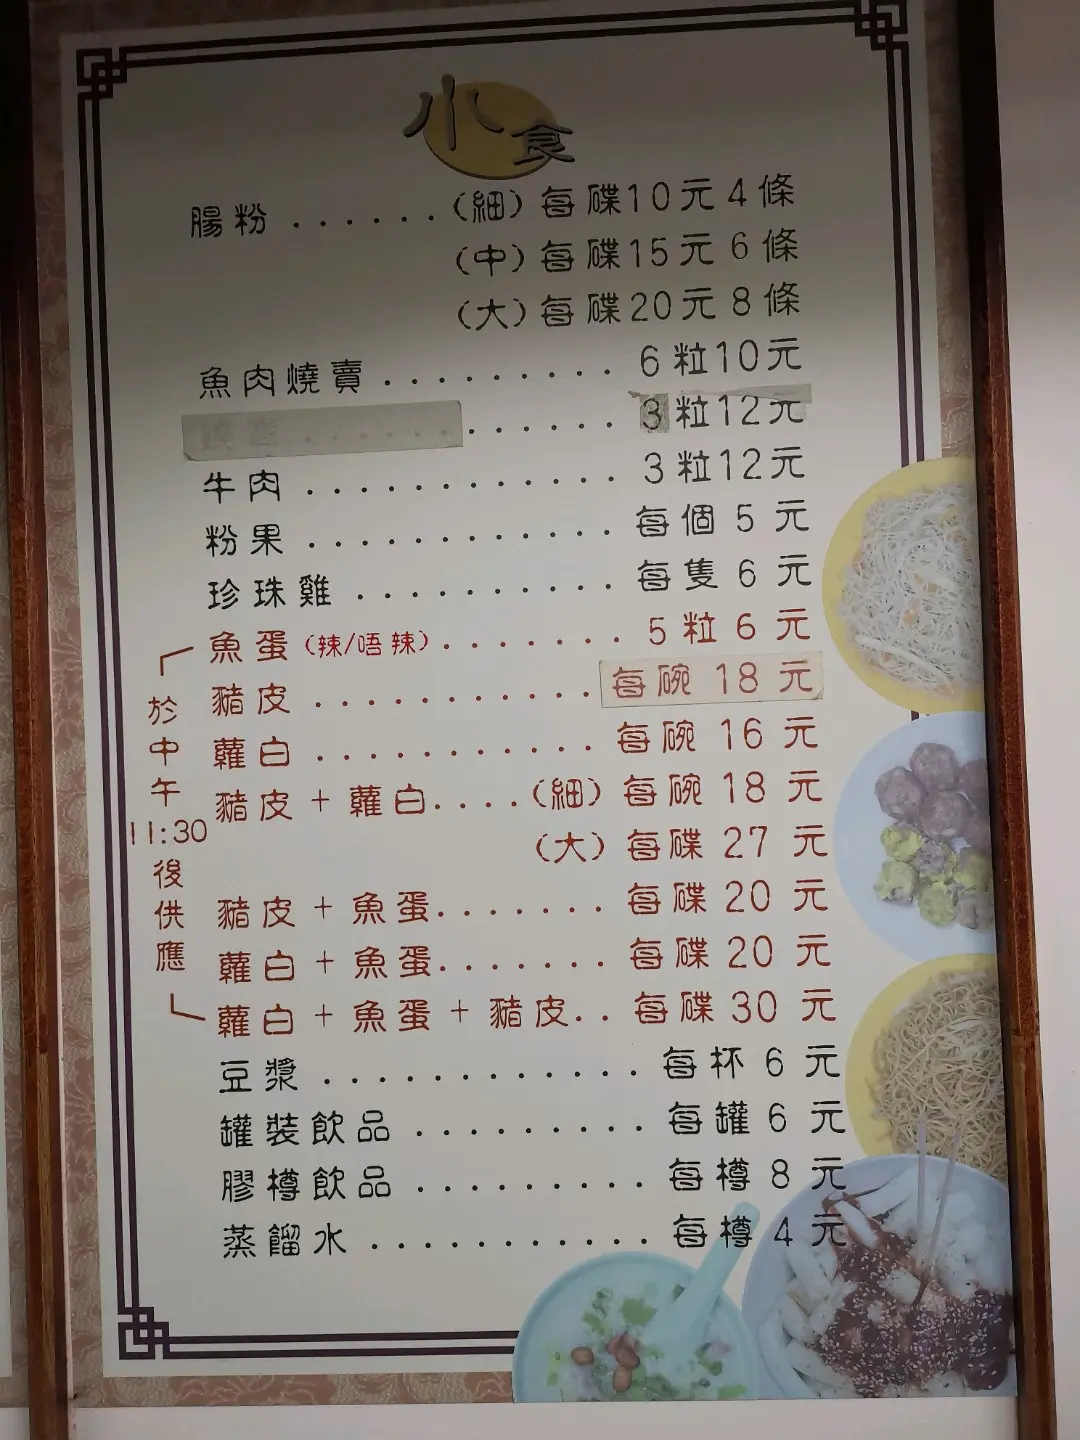 小食
腸粉......(細)每碟10元4條
(中)每碟15元6條
(大)每碟20元8條
魚肉燒賣..........6粒10元
......3粒12元
牛肉.............3粒12元
粉果............每個5元
珍珠雞..........每隻6元
魚蛋(辣/唔辣).......5粒6元
豬皮............每碗18元
蘿白............每碗16元
豬皮+蘿白....(細)每碗18元
(大)每碟27元
豬皮+魚蛋.......每碟20元
蘿白+魚蛋.......每碟20元
蘿白+魚蛋+豬皮..每碟30元
於中午11:30後供應
豆漿............每杯6元
罐裝飲品.........每罐6元
膠樽飲品.........每樽8元
蒸餾水...........每樽4元